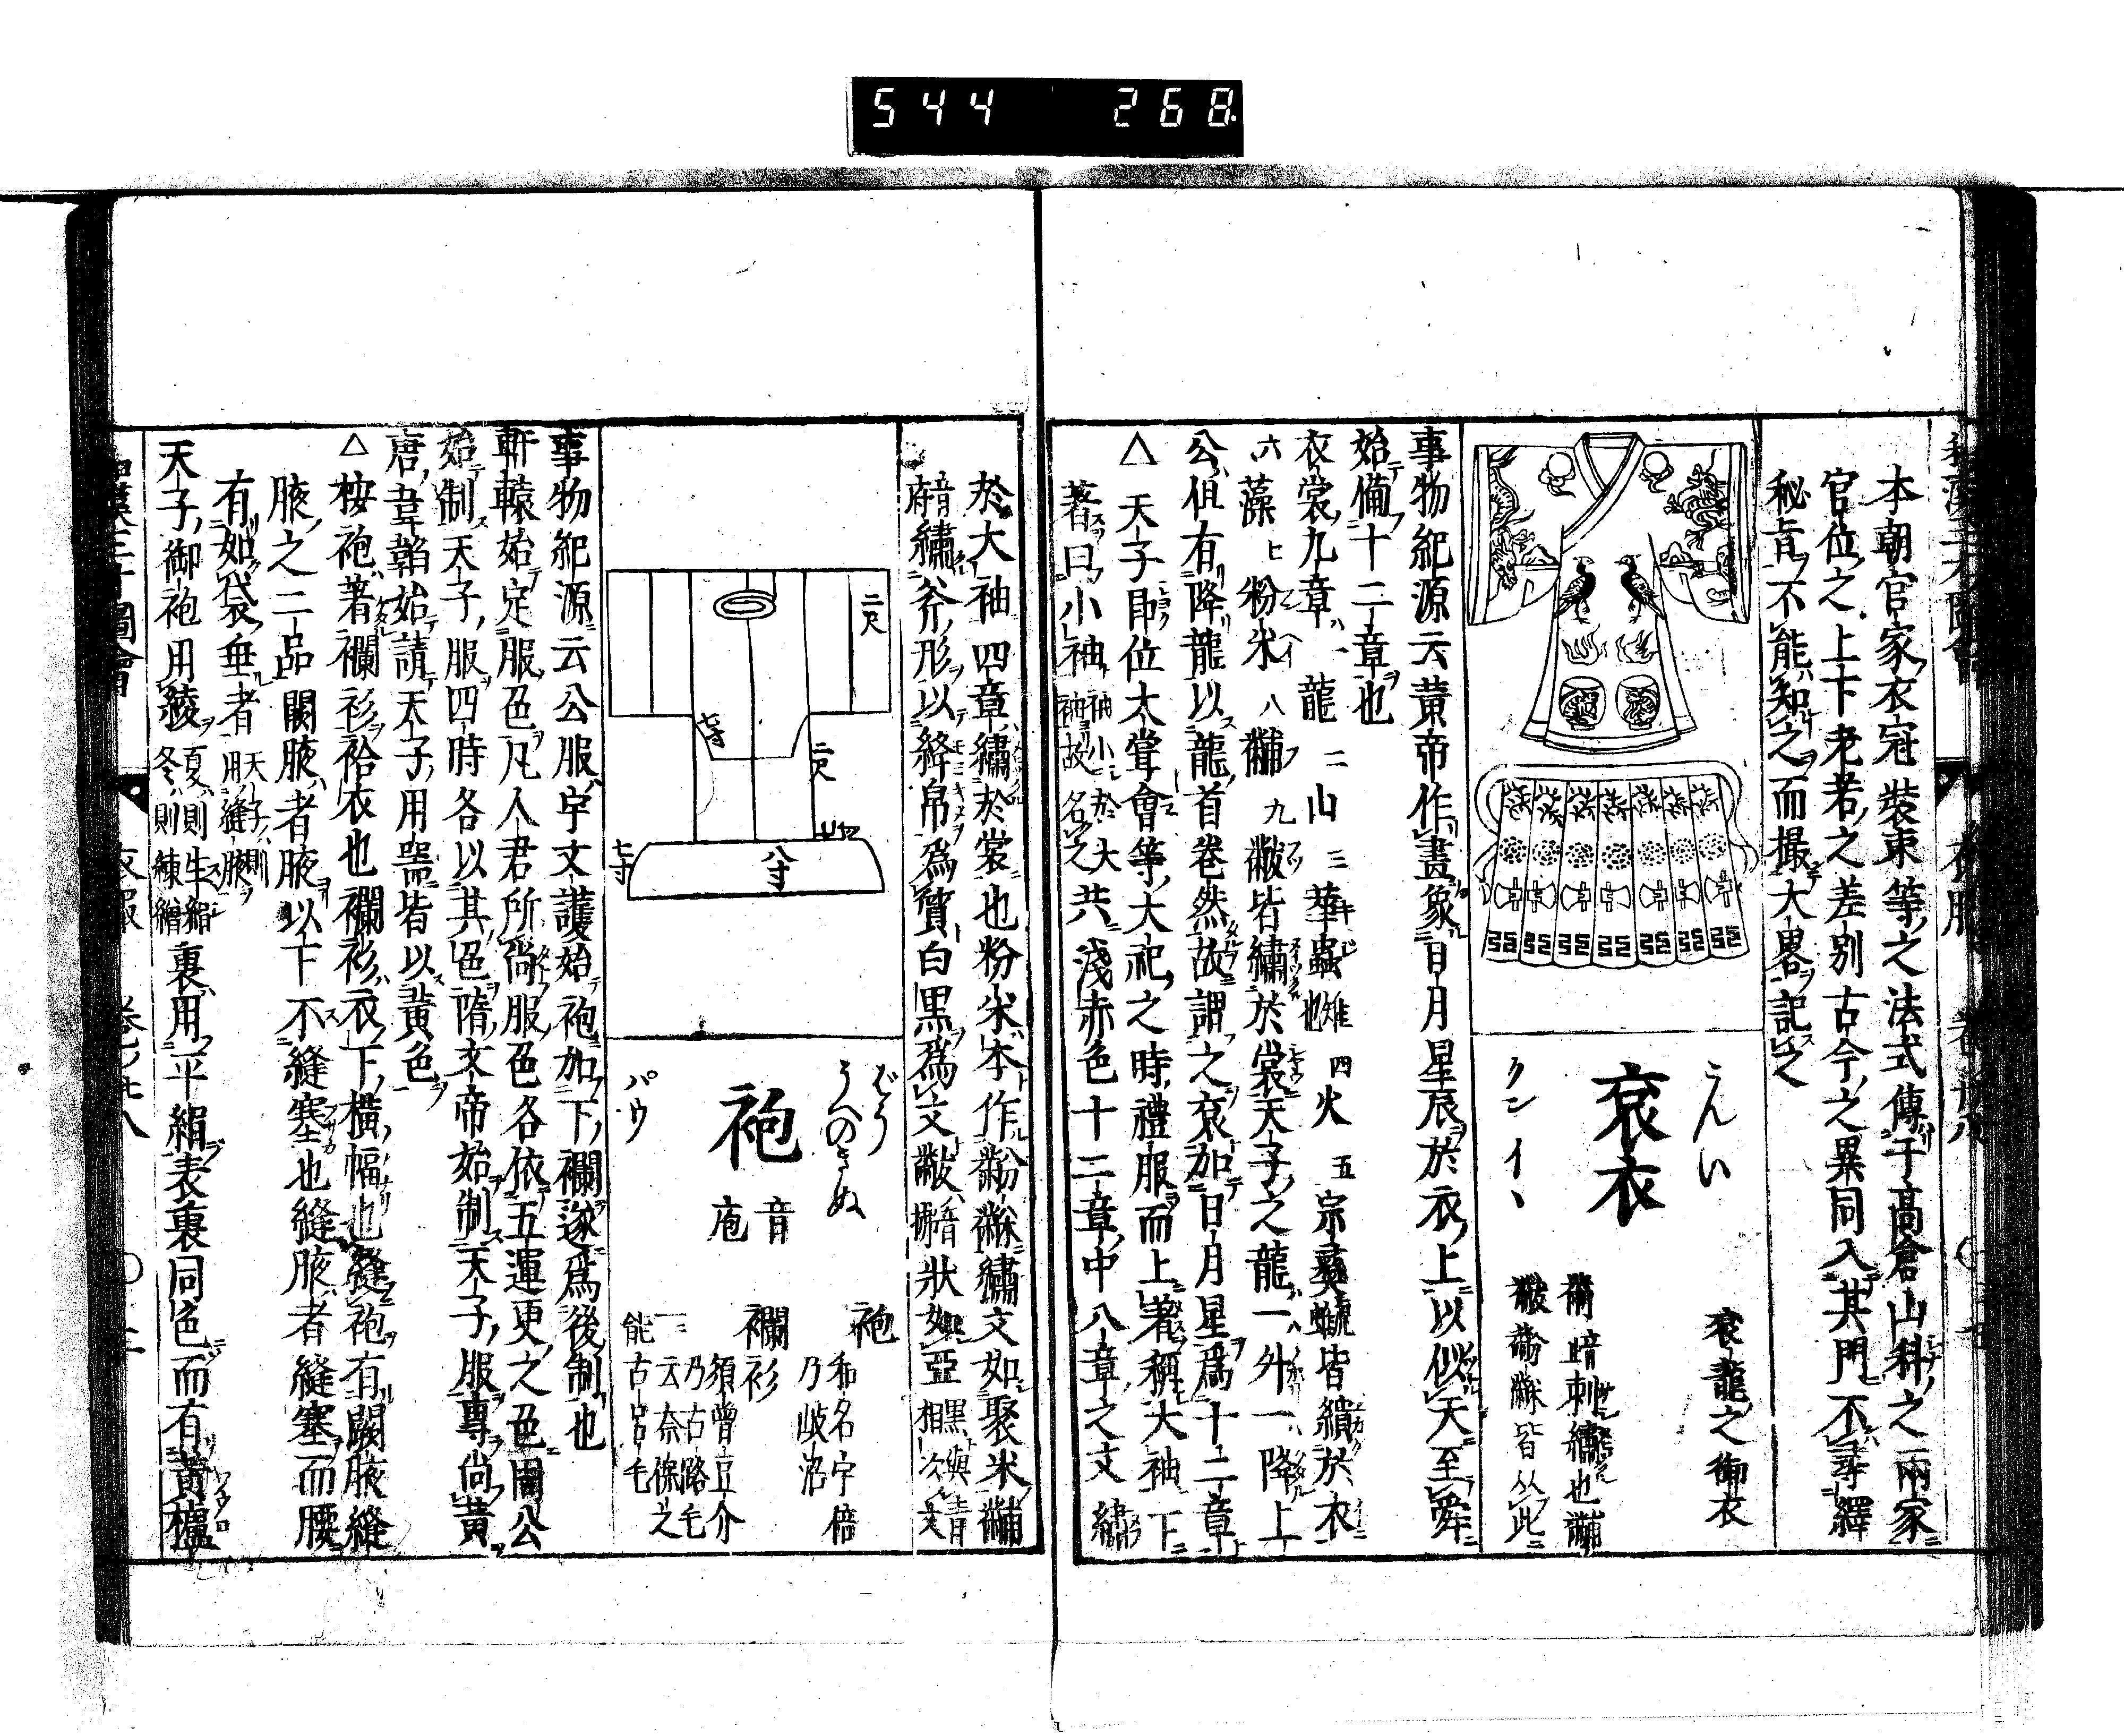 544 268
本朝官家衣冠裝束等之法式傳于高倉山科之兩家
官位之上下老若之差別古今之異同入其門不尋繹
秘旨不能知之而撮大畧記之
こんい
袞衣
クン イヽ
袞龍之御衣
黼音甫刺繡也黼
黻黺䋛皆从此
事物紀源云黃帝作畫象日月星辰於衣上以似天至舜
始備十二章也
衣裳九章一龍二山三華蟲雉也四火五宗彝皆繢於衣
六藻七粉米八黼九黻皆繡於裳天子之龍一外一降上
公但有降龍以龍首卷然故謂之袞加日月星爲十二章
△天子即位大嘗會等大祀之時禮服而上著稱大袖下
著曰小袖袖小於大袖故名之共淺赤色十二章中八章之文繡
於大袖四章繡於裳也粉米本作黺䋛繡文如聚米黼
音府繡斧形以絳帛爲質白黑爲文黻音拂狀如亞黑與青相次文
二尺
七寸
二尺
七寸
八寸
ばう
うへのきぬ
袍
音庖
パウ
袍
和名字倍
乃岐沼
襴衫
須曾豆介
乃古路毛
一云奈保之
能古呂毛
事物紀源云公服宇文護始袍加下襴遂爲後制也
軒轅始定服色凡人君所尙服色各依五運更之色閼公
始制天子服四時各以其色隋文帝始制天子服專尙黃
唐韋韜始請天子用器皆以黃色
△按袍著襴衫袷衣也襴衫衣下橫幅也縫袍有闕腋縫
腋之二品闕腋者腋以下不縫塞也縫腋者縫塞而腰
有如袋垂者天子則用縫腋
天子御袍用綾夏則生絹冬則練繒裏用平絹表裏同色而有黃櫨
和漢三才圖會
衣服
卷ノ廿八